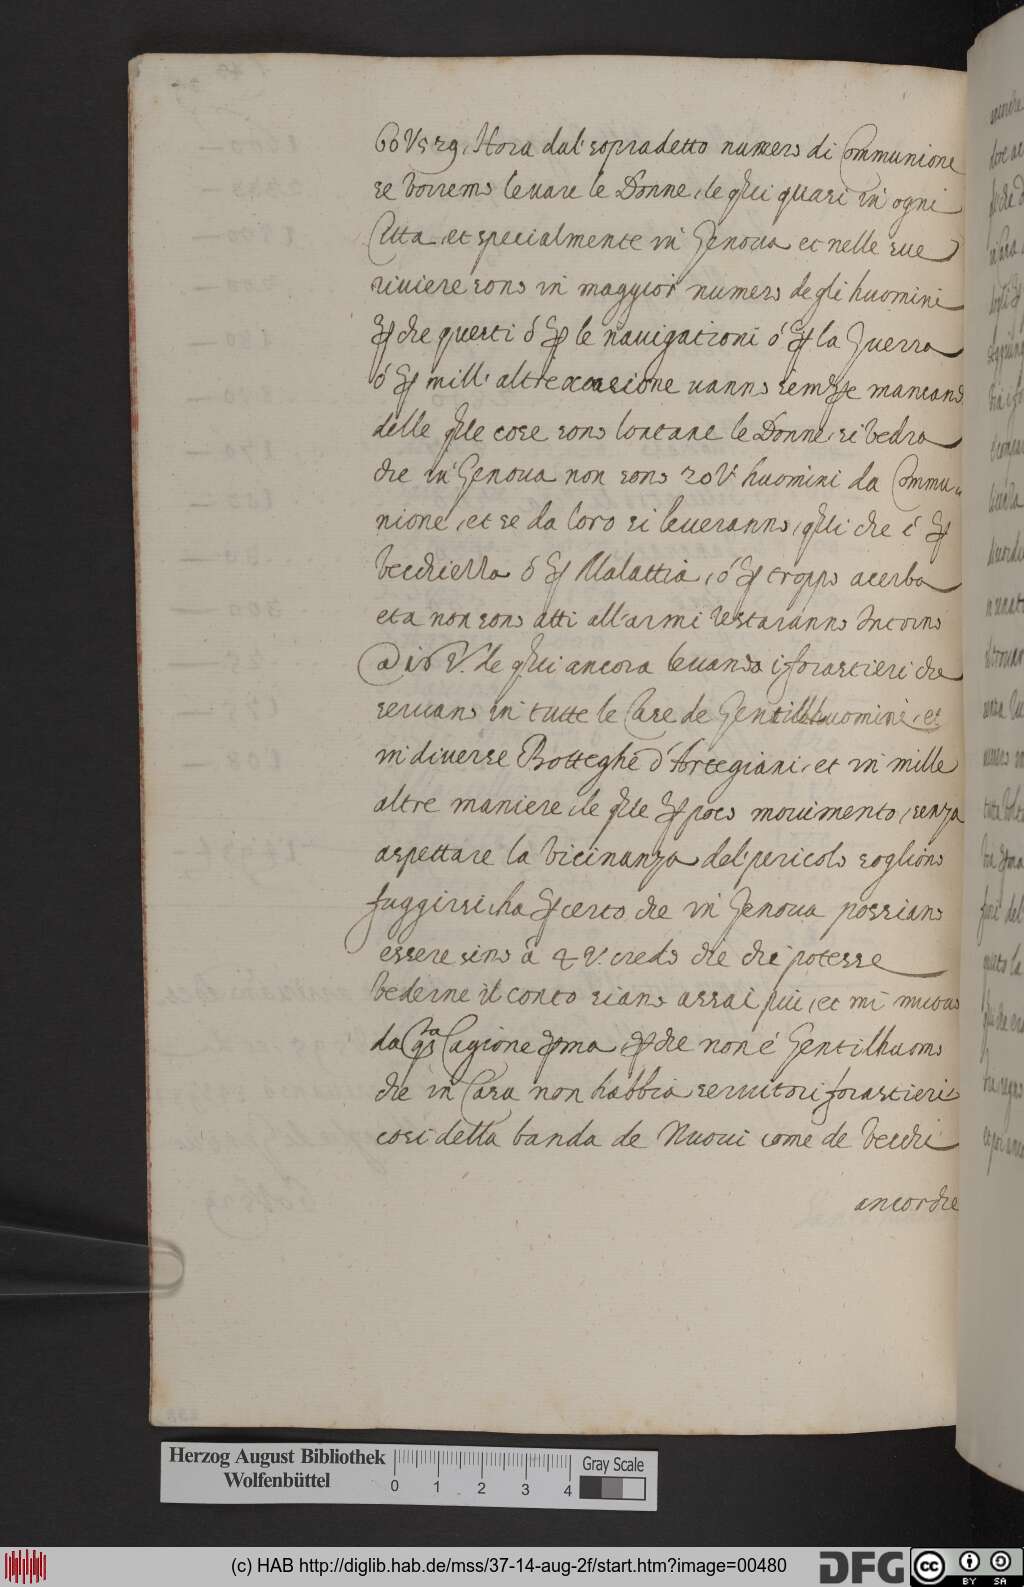 60V529. Hora dal' sopradetto numero di Communione
se vorremo levare le Donne, le qli quasi in ogni
Citta, et specialmente in Genova et nelle sue
riviere sono in maggior numero degli huomini
p che questi ó p le navigationi ó p la Guerra
ó p mill' altre occasione vanno sempre mancando
delle qle cose sono lontane le Donne, si vedra
che in Genova non sono 20V huomini da Commu-
nione, et se da loro si leveranno, qlli che ó p
vecchiezza ó p Malattia, ó p troppo acerba
eta non sono atti all'armi restaranno Intorno
a 16 V. de qli ancora levando i forastieri che
servano in tutte le Case de Gentilhuomini, et
in diverse Botteghe d'Artegiani, et in mille
altre maniere, le qle p poco movimento, senza
aspettare la vicinanza del' pericolo sogliono
fuggirsi, ha p certo che in Genova possiano
essere sino à 4 V. credo che chi potesse
vederne il conto siano assai più, et mi muovo
da qsta Cagione pma, p che non é Gentilhuomo
che in Casa non habbia servitori forastieri
cosi della banda de Nuovi come de Vecchi
ancorche
Herzog August Bibliothek
Wolfenbüttel
0 1 2 3 4
Gray Scale
(c) HAB http://diglib.hab.de/mss/37-14-aug-2f/start.htm?image=00480
DFG
cc BY SA